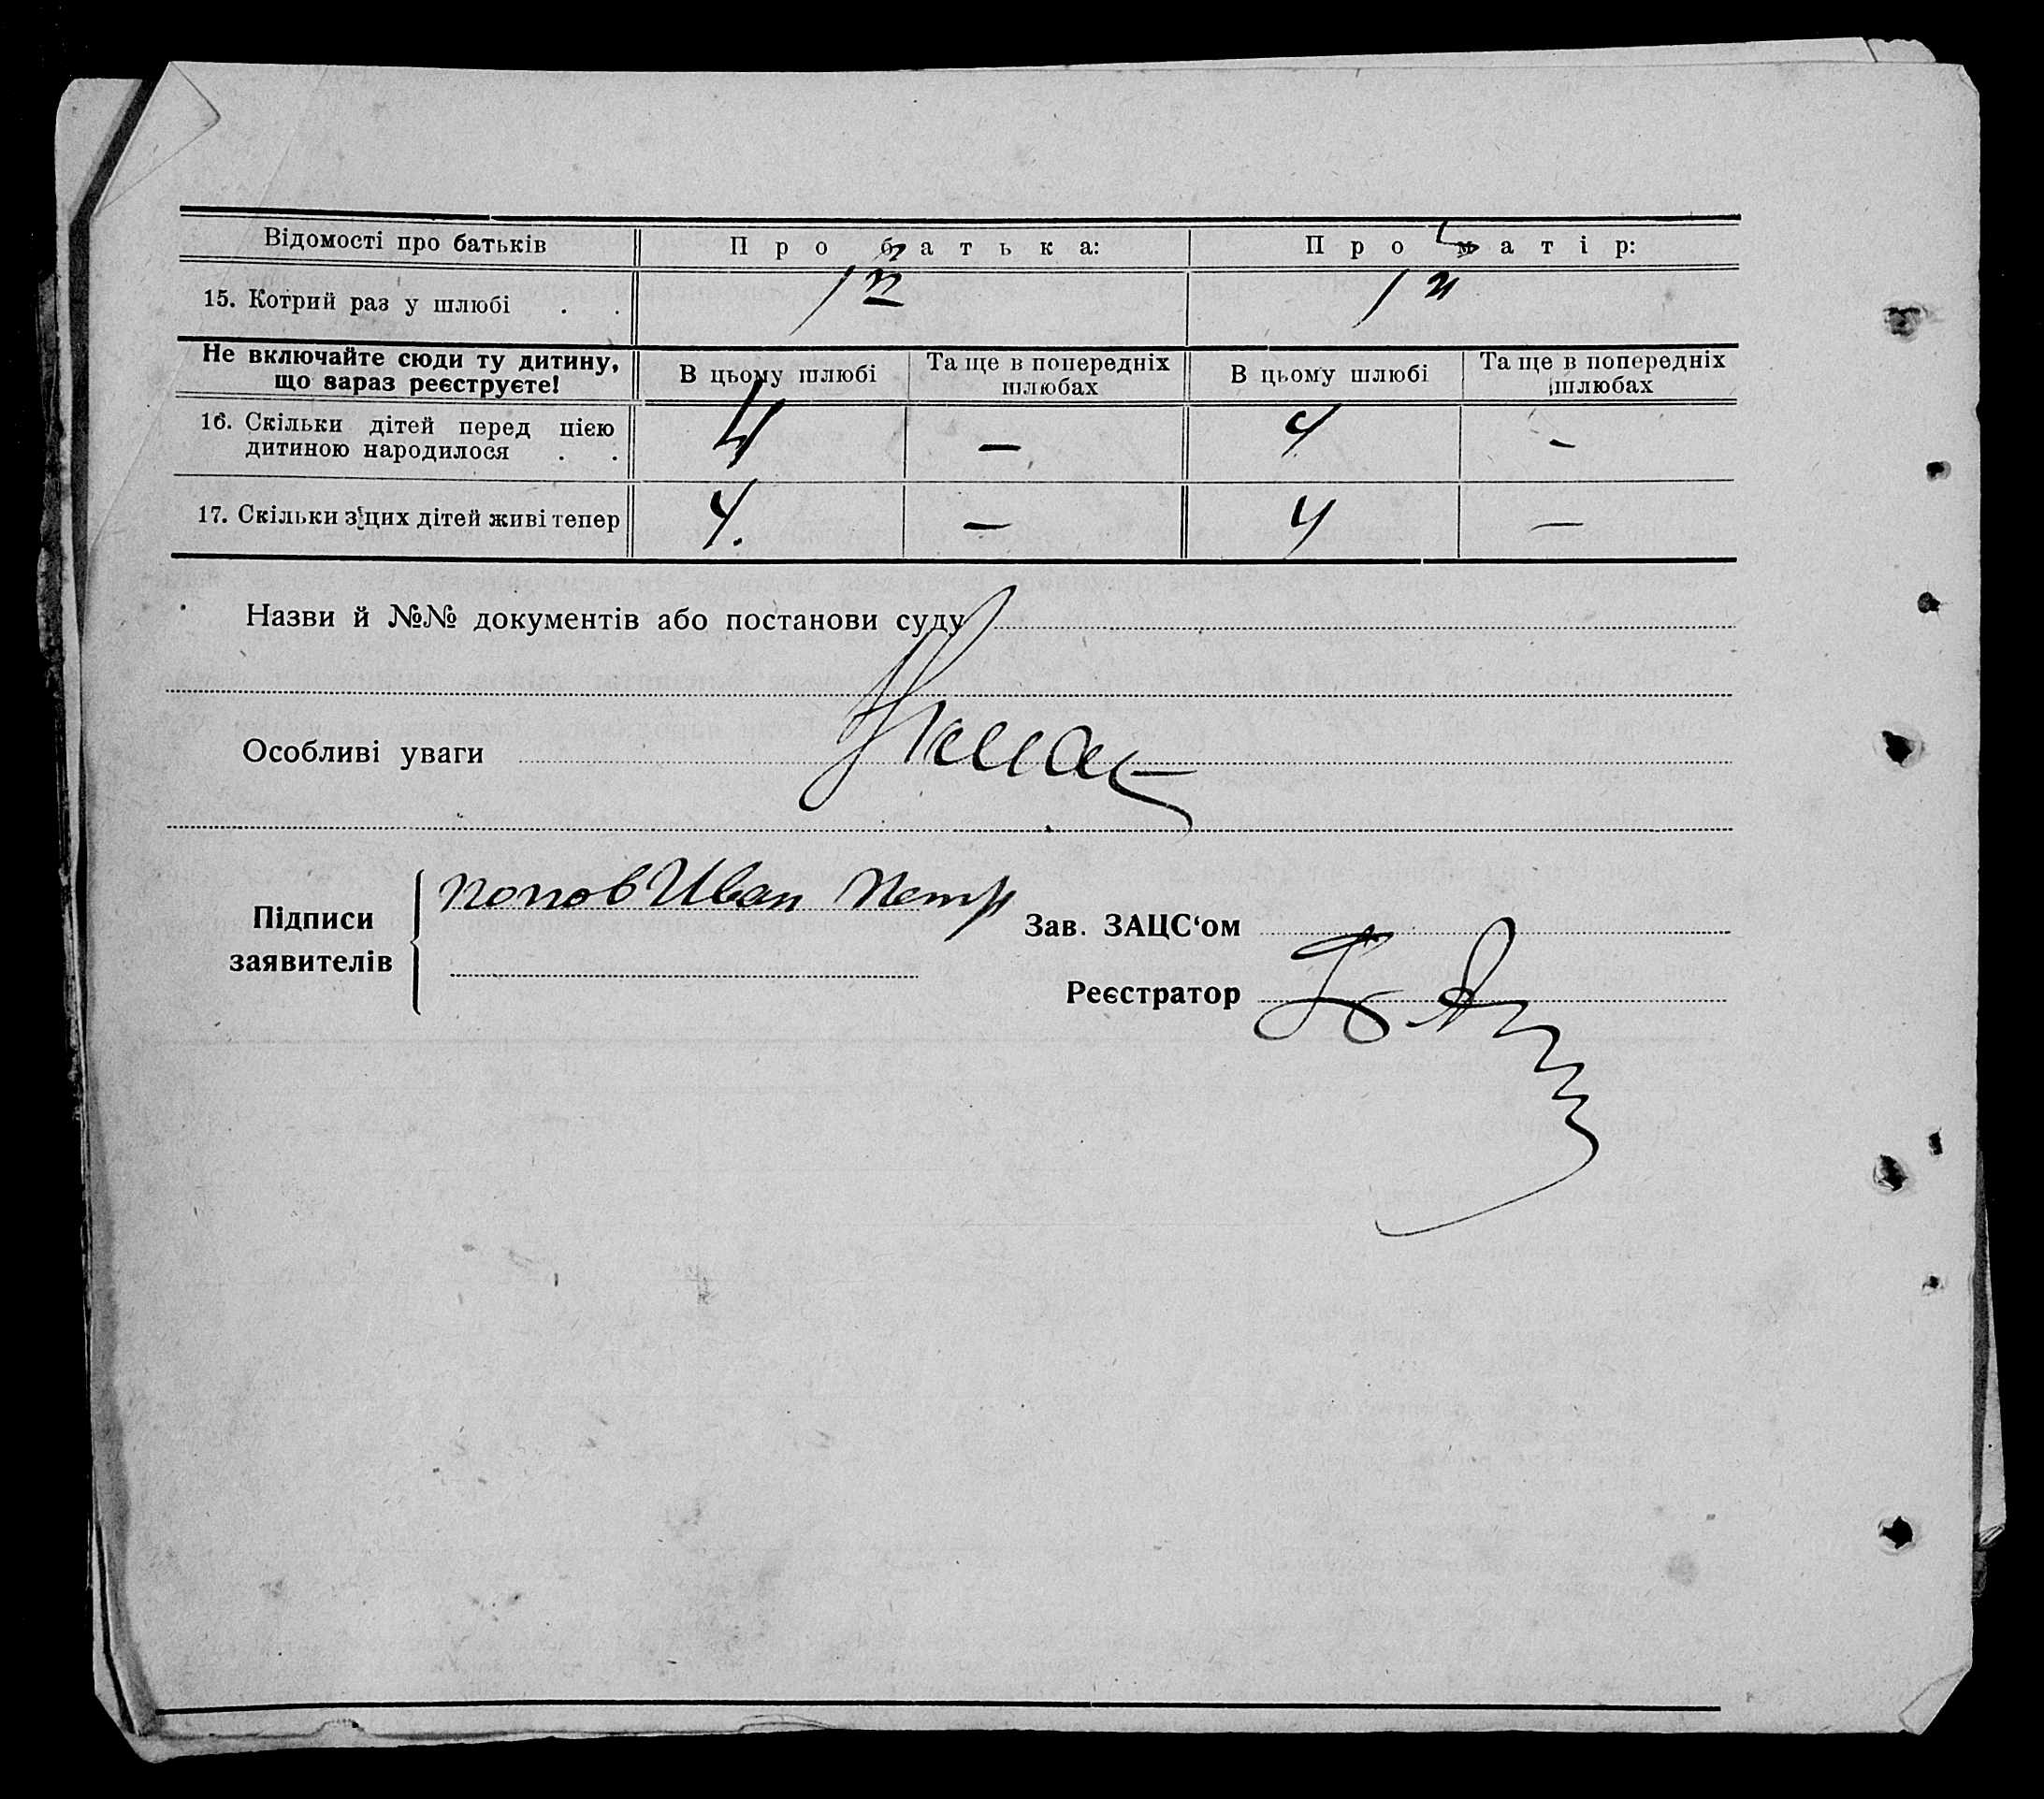 Відомості про батьків Про батька: Про матір:
15. Котрий раз у шлюбі . . 1 1
Не включайте сюди ту дитину, що зараз реєструєте! В цьому шлюбі Та ще в попередніх шлюбах В цьому шлюбі Та ще в попередніх шлюбах
16. Скільки дітей перед цією
дитиною народилося . . 4 — 4 —
17. Скільки з цих дітей живі тепер 4. — 4 —
Назви й №№ документів або постанови суду
Особливі уваги
Немає
Підписи заявителів
Попов Иван Петр
Зав. ЗАЦС‘ом
Реєстратор